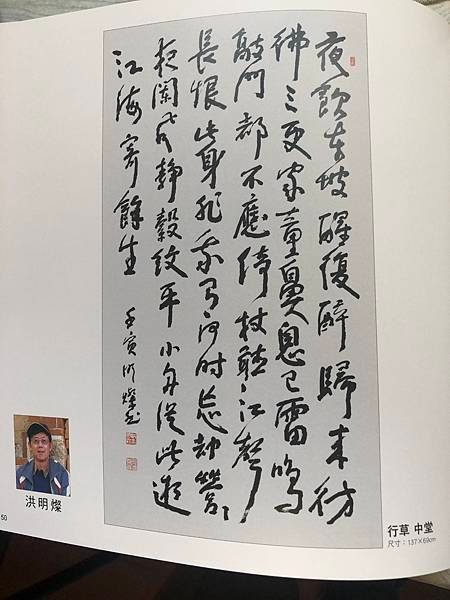 夜飲東坡醒復醉歸來彷
彿三更家童鼻息已雷鳴
敲門都不應倚杖聽江聲
長恨此身非我有何時忘却營〻
夜闌風静縠紋平小舟從此逝
江海寄餘生 壬寅明燦書
洪明燦
50
行草 中堂
尺寸：137×69cm